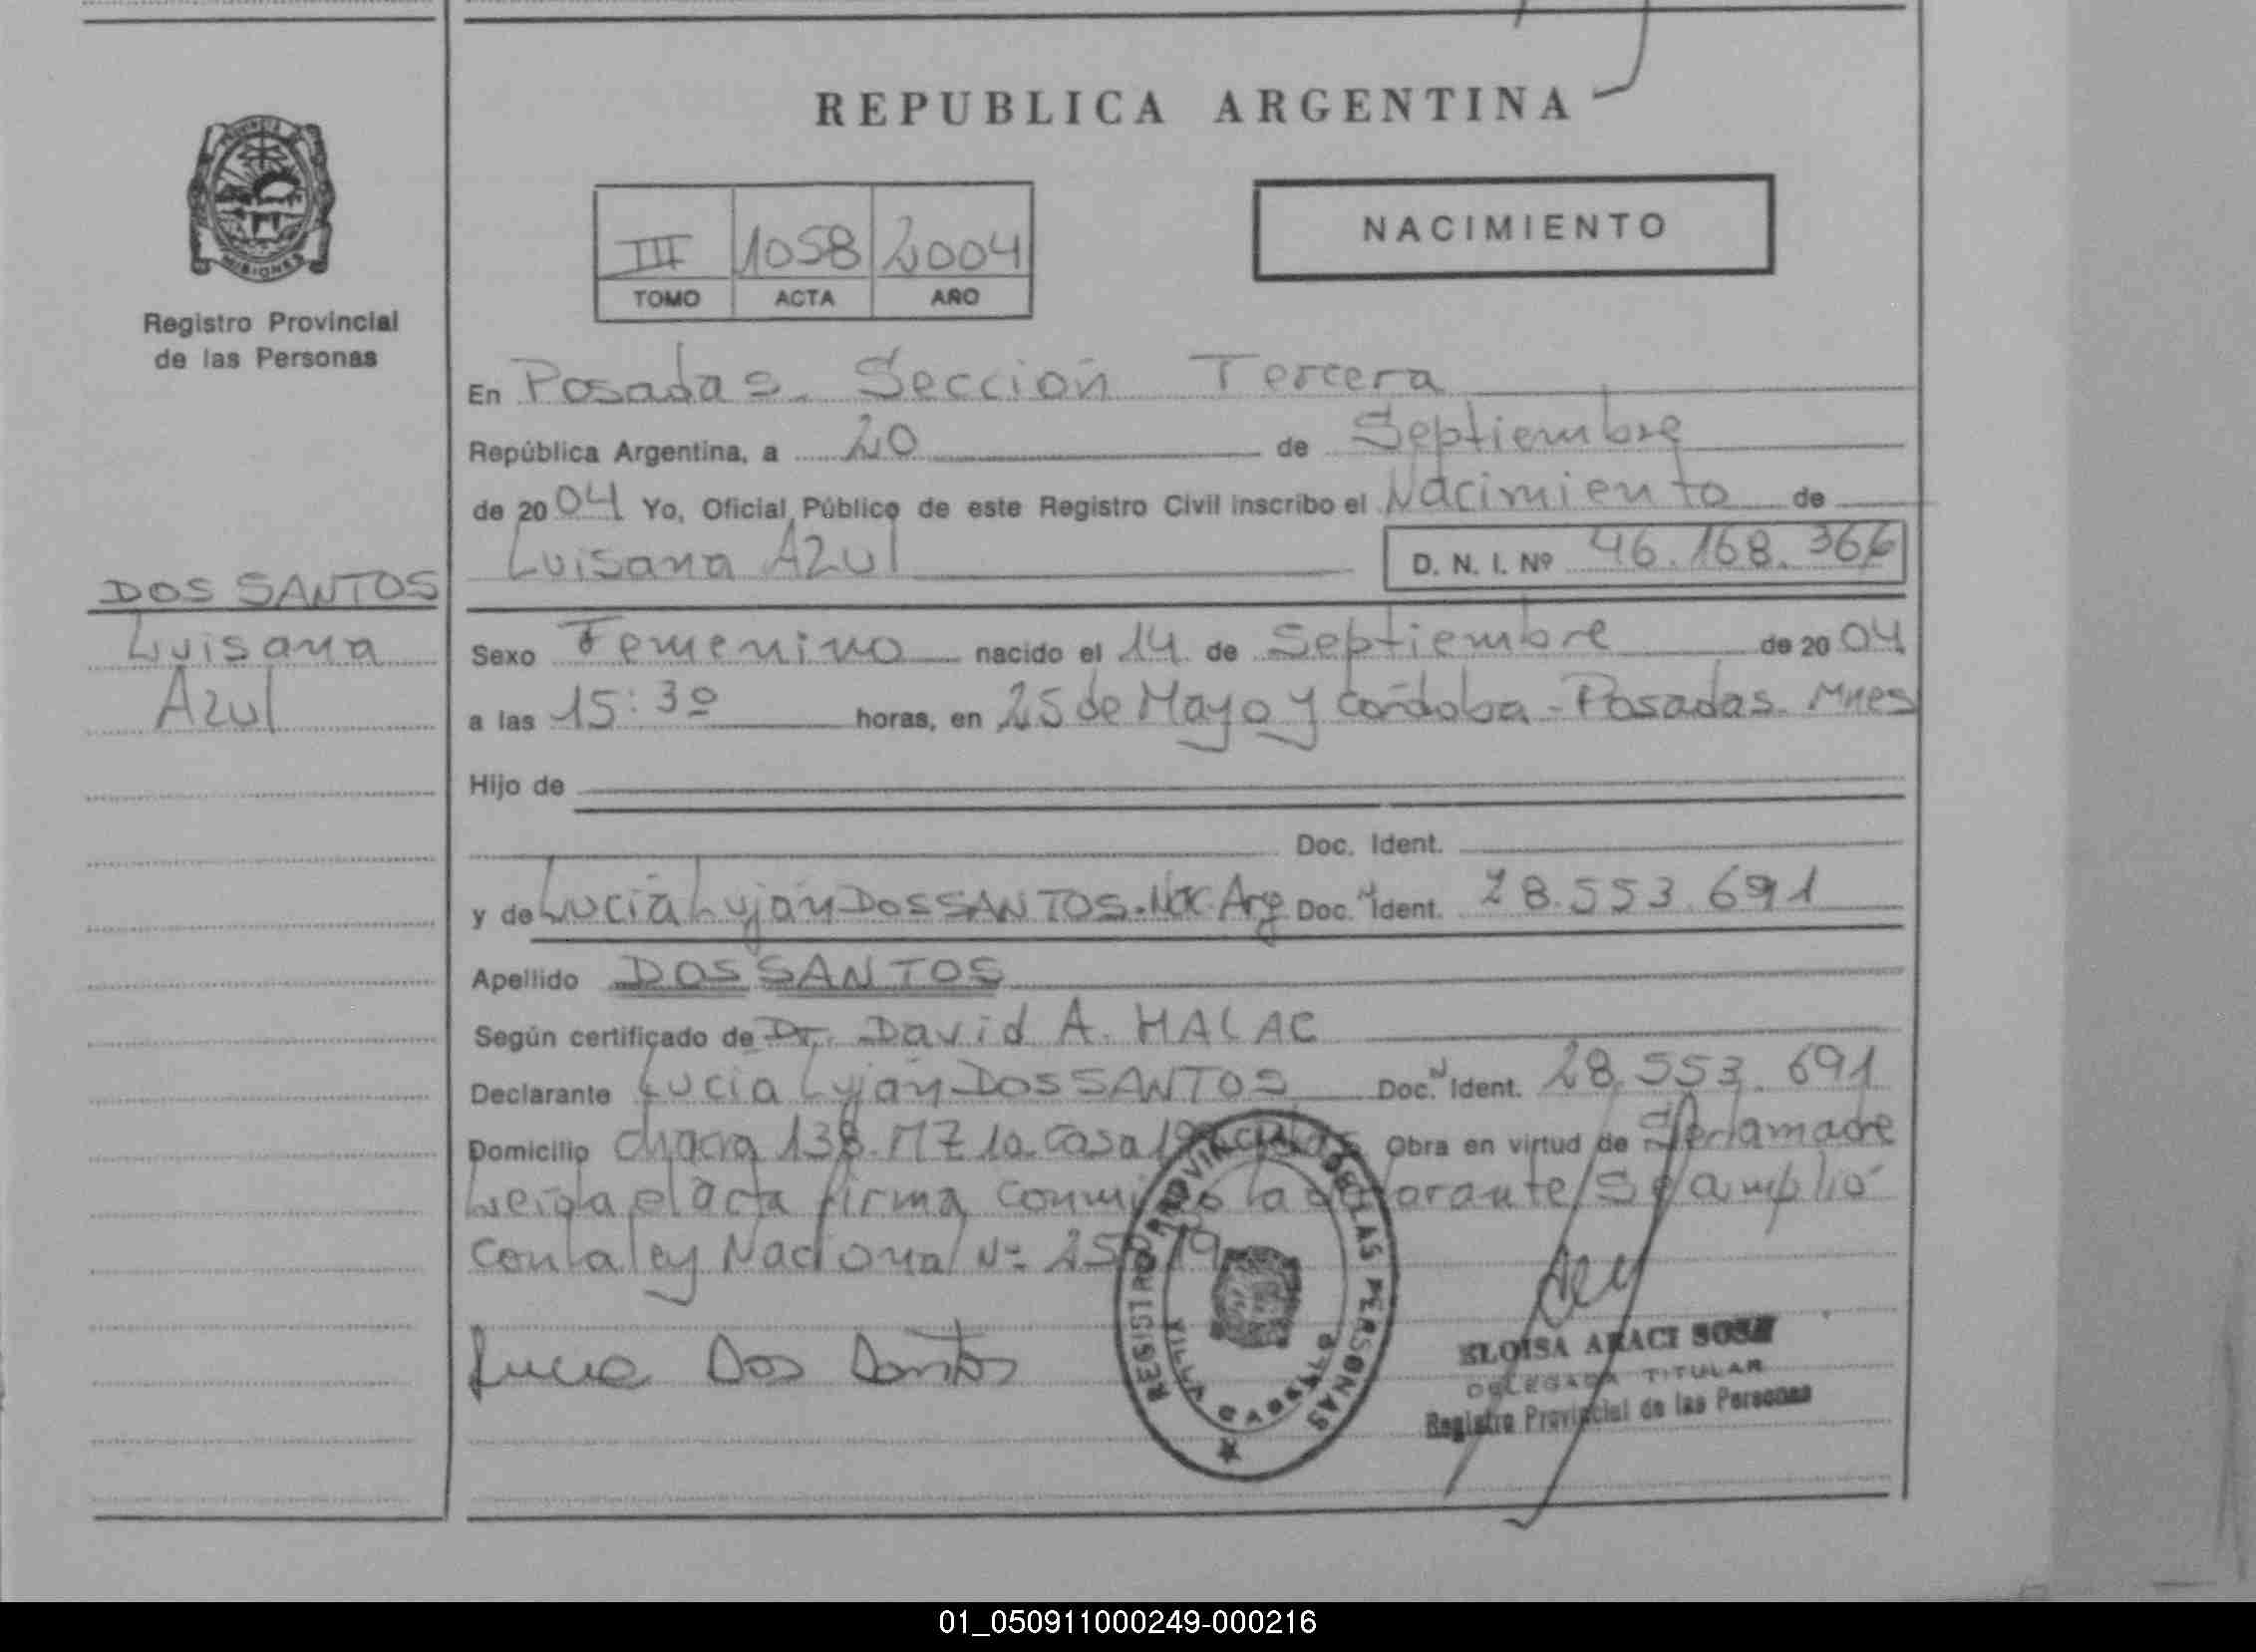 REPUBLICA ARGENTINA
PROVINCIA DE
MISIONES
Registro Provincial
de las Personas
DOS SANTOS
Luisana
Azul
III 1058 2004
TOMO ACTA AÑO
NACIMIENTO
En Posadas. Sección Tercera
República Argentina, a 20 de Septiembre
de 2004 Yo, Oficial Público de este Registro Civil inscribo el Nacimiento de
Luisana Azul D. N. I. Nº 46.168.366
Sexo Femenino nacido el 14 de Septiembre de 2004
a las 15:30 horas, en 25 de Mayo y Córdoba - Posadas. Mnes
Hijo de
Doc. Ident.
y de Lucia Luján DOS SANTOS. Nac. Arg Doc. Ident. 28.553.691
Apellido DOS SANTOS
Según certificado de Dr. David A. HALAC
Declarante Lucia Luján DOS SANTOS Doc. Ident. 28.553.691
Domicilio chacra 138. MZ 10. Casa Obra en virtud de Ser la madre
Leida el acta firma conmigo la declarante / Se amplió
con la ley Nacional Nº
Lucia Dos Santos
REGISTRO PROVINCIAL DE LAS PERSONAS
VILLA CABELLO
ELOISA ARACI SOSA
DELEGADA TITULAR
Registro Provincial de las Personas
01_050911000249-000216